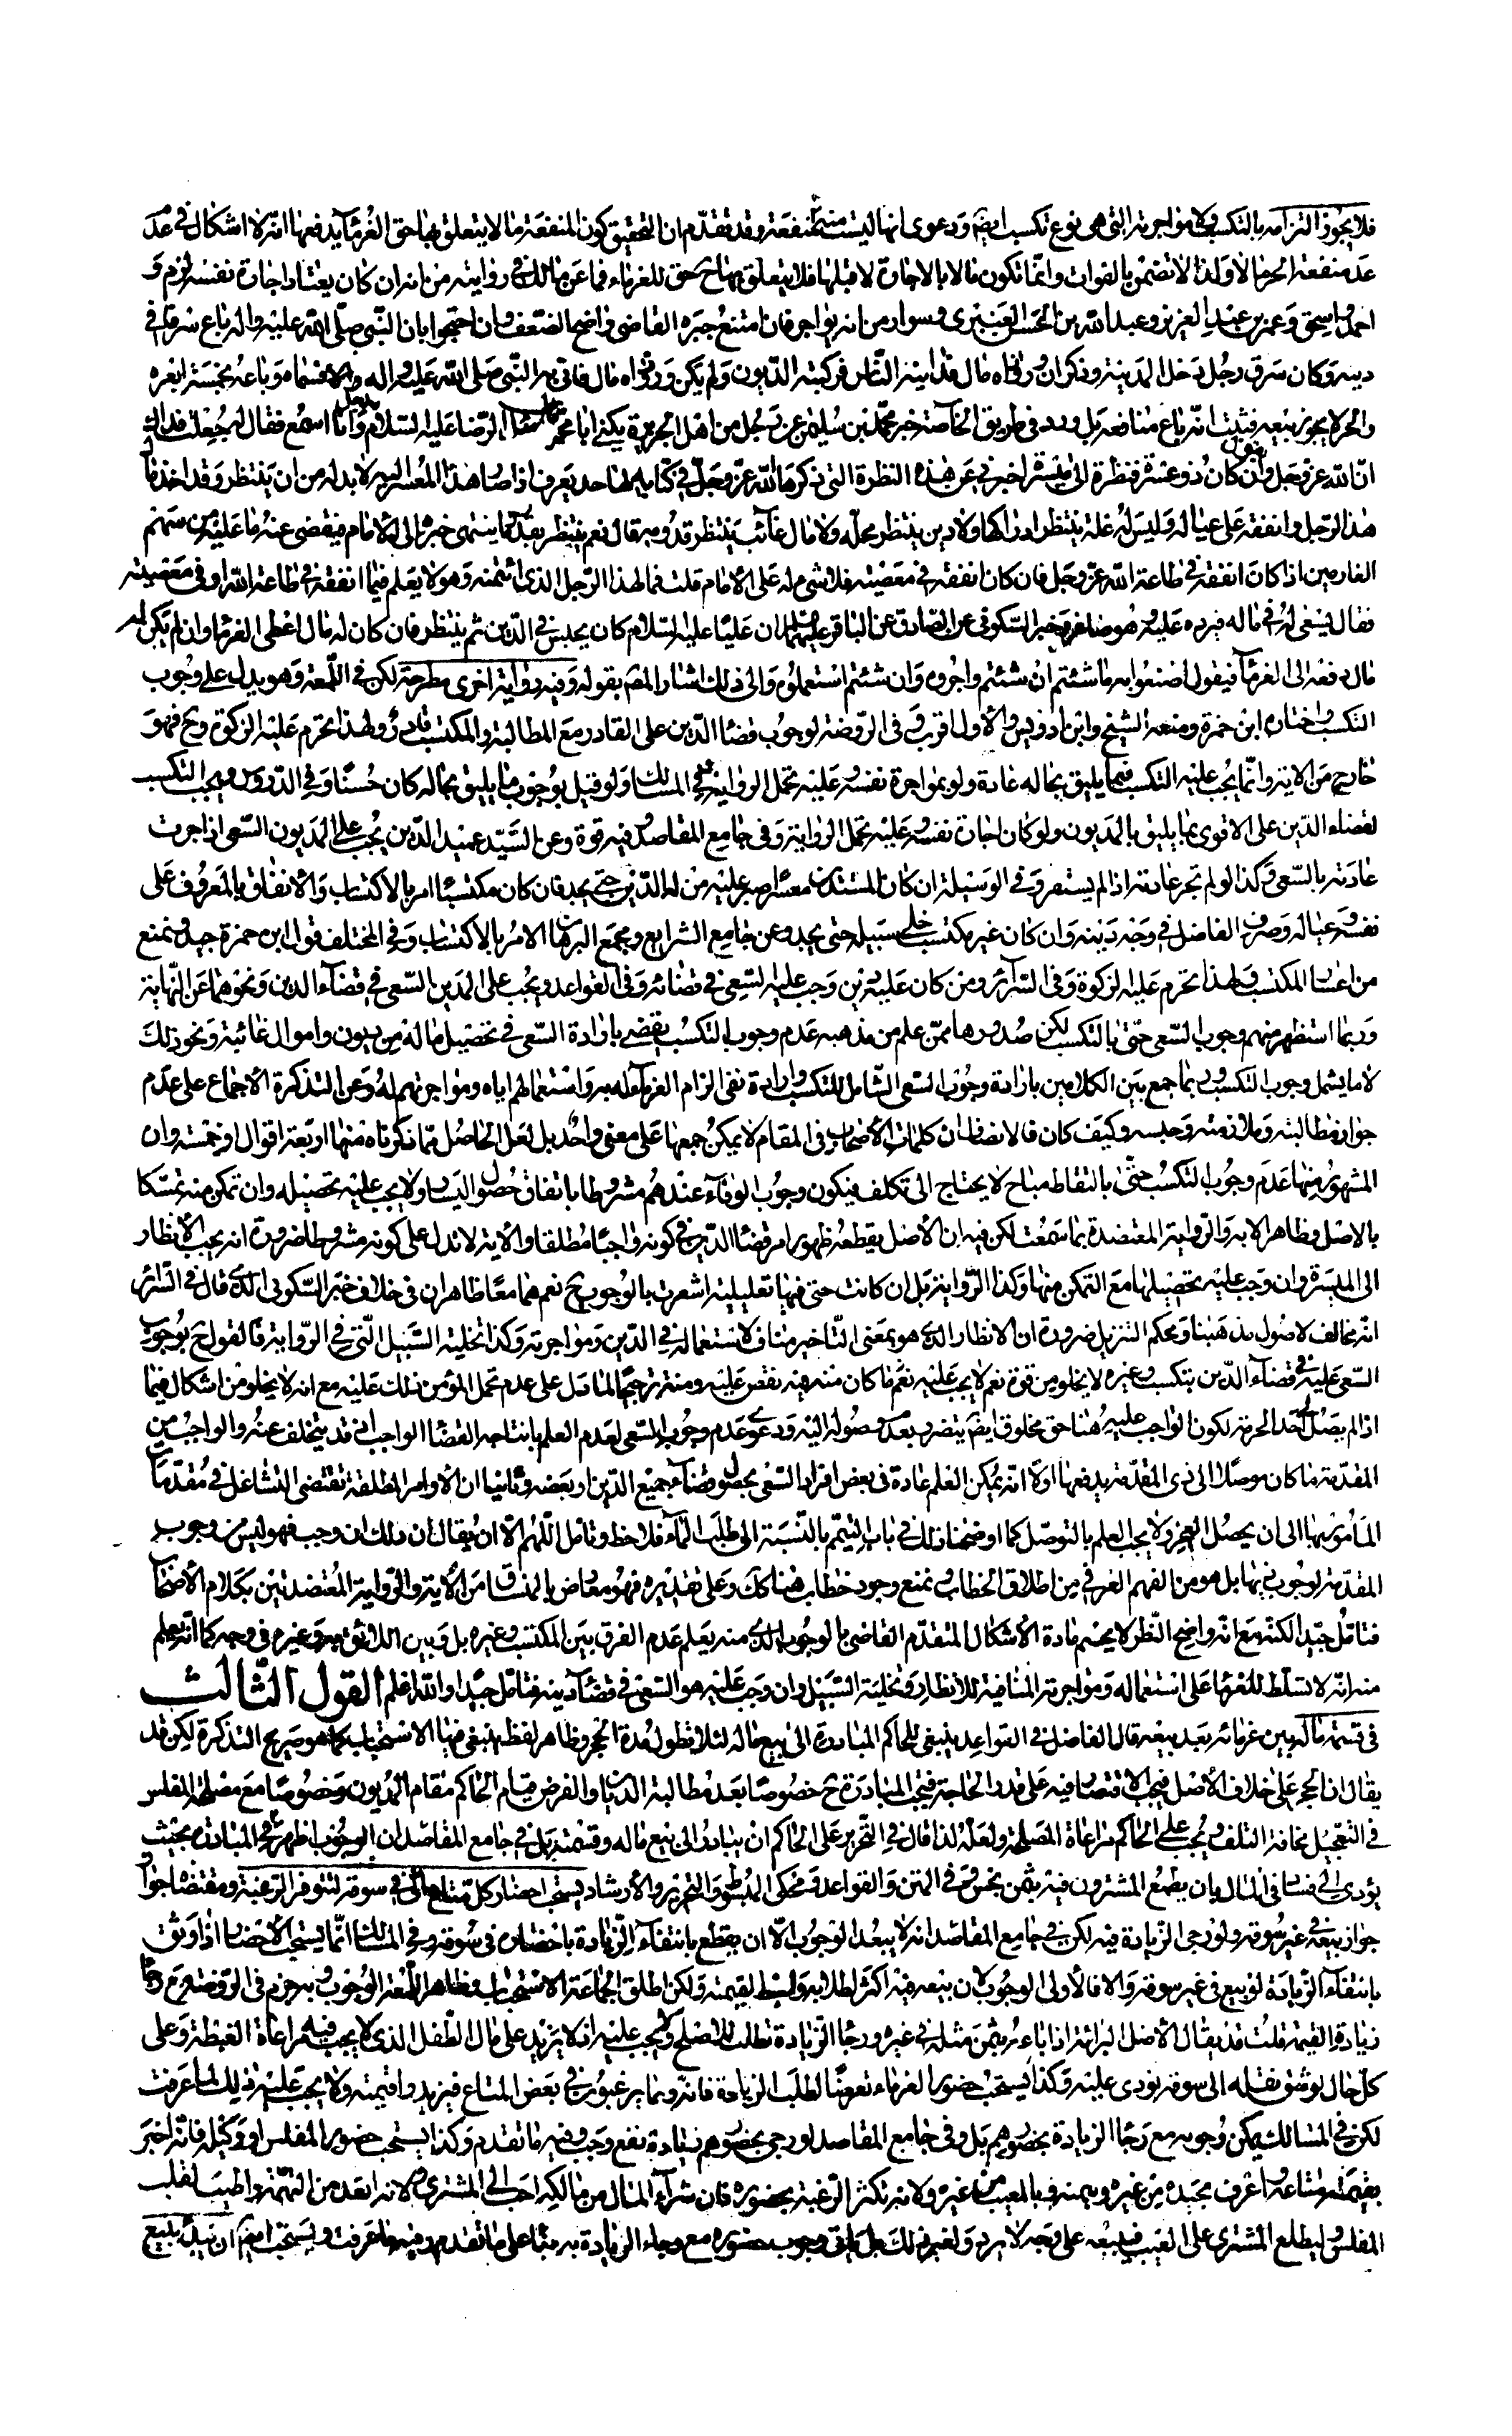 فلا يجوز التزامه بالتكسب ولا مواجرته التى هى نوع تكسب ايضا ودعوى انها ليست منه منفعة وقد تقدم ان التحقيق كون المنفعة مالا يتعلق بها حق الغرماء يدفعها انه لا اشكال فى عدم
عد منفعة الحر مالا ولذا لا تضمن بالفوات وانما تكون مالا بالاجارة لا قبلها فلا يتعلق بها ح حق للغرماء فما عن مالك فى رواية من انه ان كان يعتاد اجارة نفسه لزم و
احمد واسحق وعمر بن عبد العزيز وعبد الله بن الحسن العنبرى وسوار من انه يواجر فان امتنع جبره القاضى واضح الضعف وان احتجوا بان النبى صلى الله عليه واله باع سرقا فى
دينه وكان سرق رجل دخل المدينة وذكر ان وراءه مال فداينه الناس فركبته الديون ولم يكن وراءه مال فاتى به النبى صلى الله عليه واله وباعه بخمسة ابعرة
والحر لا يجوز بيعه فثبت انه باع منافعه بل ورد فى طريق الخاصة خبر محمد بن سليمان عن رجل من اهل الجزيرة يكنى ابا محمد قال سئل الرضا عليه السلام رجل وانا اسمع فقال له جعلت فداك
ان الله عز وجل يقول وان كان ذو عسرة فنظرة الى ميسرة اخبرنى عن هذه النظرة التى ذكرها الله عز وجل فى كتابه لها حد يعرف اذا صار هذا المعسر اليه لا بد له من ان ينتظر وقد اخذ مال
هذا الرجل وانفقه على عياله وليس له غلة ينتظر ادراكها ولا دين ينتظر محله ولا مال غائب ينتظر قدومه قال نعم ينتظر بقدر ما ينتهى خبره الى الامام فيقضى عنه ما عليه من سهم
الغارمين اذا كان انفقه فى طاعة الله عز وجل فان كان انفقه فى معصيته فلا شىء له على الامام قلت فما لهذا الرجل الذى ائتمنه وهو لا يعلم فيما انفقه فى طاعة الله او فى معصيته
فقال يسعى له فى ماله فيرده عليه وهو صاغر وخبر السكونى عن الصادق عن الباقر عليهما السلام ان عليا عليه السلام كان يحبس فى الدين ثم ينتظر فان كان له مال اعطى الغرماء وان لم يكن له
مال دفعه الى الغرماء فيقول اصنعوا به ما شئتم ان شئتم واجروه وان شئتم استعملوه والى ذلك اشار المص بقوله وفيه رواية اخرى مطرحة لكن فى اللمعة وهو يدل على وجوب
التكسب واختاره ابن حمزة ومنعه الشيخ وابن ادريس والاول اقرب وفى الروضة لوجوب قضاء الدين على القادر مع المطالبة والمكتسب قادر ولهذا تحرم عليه الزكوة وح فهو
خارج من الاية وانما يجب عليه التكسب فيما يليق بحاله عادة ولو بمواجرة نفسه وعليه تحمل الرواية وفى المسالك ولو قيل بوجوب ما يليق بحاله كان حسنا وفى الدروس ويجب التكسب
لقضاء الدين على الاقوى بما يليق بالمديون ولو كان اجارة نفسه وعليه تحمل الرواية وفى جامع المقاصد فيه قوة وعن السيد عميد الدين يجب على المديون السعى اذا جرت
عادته بالسعى وكذا لو لم تجر عادته اذا لم يستضر وفى الوسيلة ان كان المستدين معسرا صبر عليه من له الدين حتى يجد فان كان مكتسبا امر بالاكتساب والانفاق بالمعروف على
نفسه وعياله وصرف الفاضل فى وجه دينه وان كان غير مكتسب خلى سبيله حتى يجد وعن جامع الشرايع ومجمع البرهان الامر بالاكتساب وفى المختلف قول ابن حمزة جيد ونمنع
من اعسار المكتسب ولهذا تحرم عليه الزكوة وفى السرائر ومن كان عليه دين وجب عليه السعى فى قضائه وفى القواعد ويجب على المدين السعى فى قضاء الدين ونحوهما عن النهاية
وربما استظهر منهم وجوب السعى حتى بالتكسب لكن صدورها ممن علم من مذهبه عدم وجوب التكسب يقضى بارادة السعى فى تحصيل ماله من ديون واموال غائبة ونحو ذلك
لا ما يشمل وجوب التكسب وربما جمع بين الكلامين بارادة وجوب السعى الشامل للتكسب وارادة نفى الزام الغرماء له به واستعمالهم اياه ومواجرتهم له وعن التذكرة الاجماع على عدم
جواز مطالبته وملازمته وحبسه وكيف كان فالانصاف ان كلمات الاصحاب فى المقام لا يمكن جمعها على معنى واحد بل لعل الحاصل مما ذكرناه منها اربعة اقوال او خمسة وان
المشهور منها عدم وجوب التكسب حتى بالتقاط مباح لا يحتاج الى تكلف فيكون وجوب الوفاء عندهم مشروطا باتفاق حصول اليسار ولا يجب عليه تحصيله وان تمكن منه تمسكا
بالاصل وظاهر الاية والرواية المعتضدة بما سمعت لكن فيه ان الاصل يقطعه ظهور امر قضاء الدين فى كونه واجبا مطلقا والاية لا تدل على كونه مشروطا ضرورة انه يجب الانظار
الى الميسرة وان وجب عليه تحصيلها مع التمكن منها وكذا الرواية بل ان كانت حتى فيها تعليلية اشعرت بالوجوب ح نعم هما معا ظاهران فى خلاف خبر السكونى الذى قال فى السرائر
انه مخالف لاصول مذهبنا ومحكم التنزيل ضرورة ان الانظار الذى هو بمعنى التاخير مناف لاستعماله فى الدين ومواجرته وكذا تخلية السبيل التى فى الرواية فالقول ح بوجوب
السعى عليه فى قضاء الدين بتكسب وغيره لا يخلو من قوة نعم لا يجب عليه نعم ما كان منه فيه نقص عليه ومنة ترجيحا لما دل على عدم تحمل المؤمن ذلك عليه مع انه لا يخلو من اشكال فيما
اذا لم يصل الى حد الحرمة لكون الواجب عليه هنا حق مخلوق ايضا يتضرر بعدم وصوله اليه ودعوى عدم وجوب السعى لعدم العلم بانتاجه القضاء الواجب اذ قد يتخلف عنه والواجب من
المقدمة ما كان موصلا الى ذى المقدمة يدفعها اولا انه يمكن العلم عادة فى بعض افراد السعى بحصول قضاء جميع الدين او بعضه وثانيا ان الاوامر المطلقة تقتضى التشاغل فى مقدمات
المأمور بها الى ان يحصل العجز ولا يجب العلم بالتوصل كما اوضحنا ذلك فى باب التيمم بالنسبة الى طلب الماء فلاحظ وتامل اللهم الا ان يقال ان ذلك ان وجب فهو ليس من وجوب
المقدمة لوجوب ذيها بل هو من الفهم العرفى من اطلاق الخطاب ونمنع وجود خطاب هنا كك وعلى تقديره فهو معارض بالمنساق من الاية والرواية المعتضدتين بكلام الاصحاب
فتامل جيدا لكنه مع انه واضح النظر لا يحسم مادة الاشكال المتقدم القاضى بالوجوب الذى منه يعلم عدم الفرق بين المكتسب وغيره بل وبين اللائق به وغيره فى وجه كما انه يعلم
منه انه لا تسلط للغرماء على استعماله ومواجرته المنافية للانظار وتخلية السبيل وان وجب عليه هو السعى فى قضاء دينه فتامل جيدا والله اعلم القول الثالث
فى قسمة ماله بين غرمائه بعد بيعه قال الفاضل فى القواعد ينبغى للحاكم المبادرة الى بيع ماله لئلا تطول مدة الحجر وظاهر لفظ ينبغى فيها الاستحباب كما هو صريح التذكرة لكن قد
يقال ان الحجر على خلاف الاصل فيجب الاقتصار فيه على قدر الحاجة فيجب المبادرة ح خصوصا بعد مطالبة الديان والفرض قيام الحاكم مقام المديون وخصوصا مع مصلحة المفلس
فى التعجيل مخافة التلف ويجب على الحاكم مراعاة المصلحة ولعله لذا قال فى التحرير على الحاكم ان يبادر الى بيع ماله وقسمته بل فى جامع المقاصد ان الوجوب اظهر وفى المبادرة بحيث
يؤدى الى فساد فى المال بان يطمع المشترون فيه بثمن بخس وفى المتن والقواعد ومحكى المبسوط والتحرير والارشاد يستحب احضار كل متاع فى سوقه لتتوفر الرغبة ومقتضاه
جواز بيعه فى غير سوقه ولو رجى الزيادة فيه لكن فى جامع المقاصد انه لا يبعد الوجوب الا ان يقطع بانتفاء الزيادة باحضاره فى سوقه وفى المسالك انما يستحب الاحضار اذا وثق
بانتفاء الزيادة لو بيع فى غير سوقه والا فالاولى الوجوب لان بيعه فيه اكثر لطلابه واضبط لقيمته ولكن اطلق الجماعة الاستحباب وظاهر اللمعة الوجوب وبه جزم فى الروضة مع رجاء
زيادة القيمة قلت قد يقال الاصل البرائة اذا باعه بثمن مثله فى غيره ورجاء الزيادة تطلب للاصلح ولا يجب عليه اذ لا يزيد على مال الطفل الذى لا يجب فيه مراعاة الغبطة وعلى
كل حال لو شق نقله الى سوقه نودى عليه وكذا يستحب حضور الغرماء تعرضا لطلب الزيادة فانه ربما يرغبون فى بعض المتاع فيزيدوا قيمته ولا يجب عليه ذلك لما عرفت
لكن فى المسالك يمكن وجوبه مع رجاء الزيادة بحضورهم بل وفى جامع المقاصد لو رجى بحضورهم زيادة نفع وجب وفيه ما تقدم وكذا يستحب حضور المفلس او وكيله فانه اخبر
بقيمة متاعه واعرف بجيده من غيره وبثمنه وبالمعيب من غيره ولانه تكثر الرغبة بحضوره فان شراء المال من مالكه احب الى المشترى ولانه ابعد من التهمة واطيب لقلب
المفلس وليطلع المشترى على العيب فيبيعه على وجه لا يرد ولغير ذلك بل ياتى وجوب حضوره مع رجاء الزيادة به بناء على ما تقدم وفيه ما عرفت ويستحب ايضا ان يبدأ ببيع